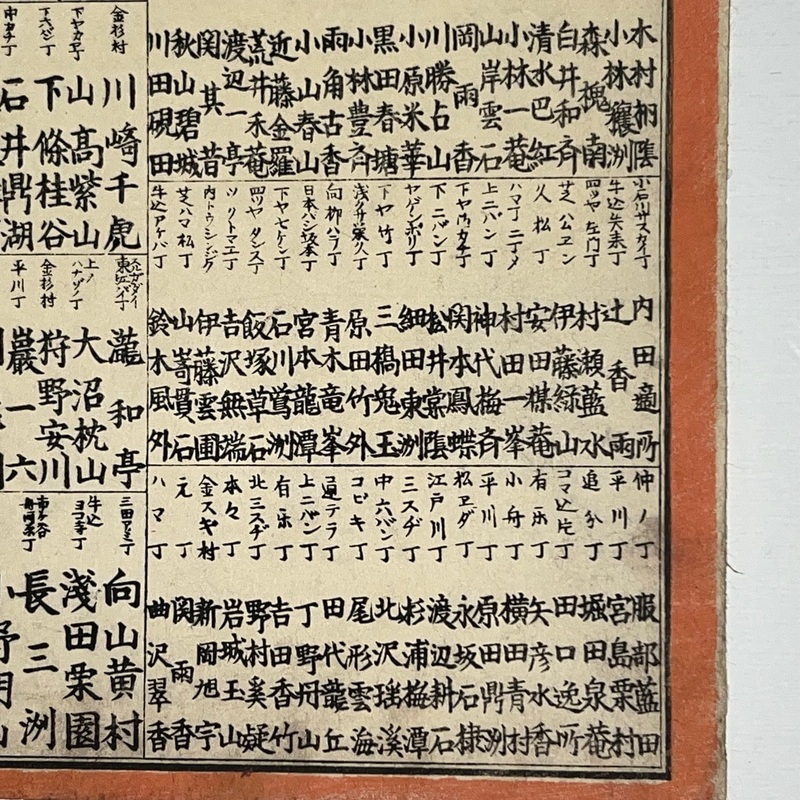 木村栁陰
小林穰洲
森槐南
白井和斉
清水巴紅
小林一菴
山岸雲石
岡雨香
川勝占山
小原米華
黒田春塘
小林豊斉
雨角古香
小山春山
近藤金羅
荒井禾菴
渡辺一亭
関其昔
秋山碧城
川田硯田
小石川サスカイ丁 内田適所
牛込矢来丁 辻香雨
四ツヤ左門丁 村瀬藍水
芝公エン 伊藤緑山
久松丁 安田楳菴
ハマ丁二丁メ 村田一峯
上二バン丁 神代梅斉
下ヤ御カチ丁 関本鳳蝶
下二バン丁 松井棠陰
ヤゲンボリ丁 細田東洲
下ヤ竹丁 三橋兎玉
浅クサ栄久丁 原田竹外
向柳ハラ丁 青木竜峯
日本バシ坂本丁 宮本龍潭
下ヤ七ケン丁 石川鴬洲
四ツヤタンス丁 飯塚草石
ツクトマエ丁 吉沢無端
内トウシンジク 伊藤雲圃
芝ハマ松丁 山嵜貫石
牛込アケバ丁 鈴木風外
仲ノ丁 服部藍田
平川丁 宮島栗村
追分丁 堀田泉菴
コマ込片丁 田口逸所
有楽丁 矢彦水香
小舟丁 横田青村
平川丁 原田鼎洲
松エダ丁 永坂石棣
江戸川丁 渡辺耕石
三スヂ丁 杉浦梅潭
中六バン丁 北沢瑶渓
コビキ丁 尾形雲海
通テラ丁 田代龍丘
上二バン丁 丁野丹山
有楽丁 吉田香竹
北三スヂ丁 野村奚疑
本々丁 岩城玉山
金スヤ村 新岡旭宇
元丁 関雨香
ハマ丁 曲沢翠香
金杉村 川崎千虎
下ヤカチ丁 山高紫山
下六バン丁 下條桂谷
中カチ丁 石井鼎湖
瀧和亭
上ノハナゾノ丁 大沼枕山
金杉村 狩野安川
平川丁 巖一六
向山黄村
牛込ヨコ寺丁 淺田栗園
長三洲